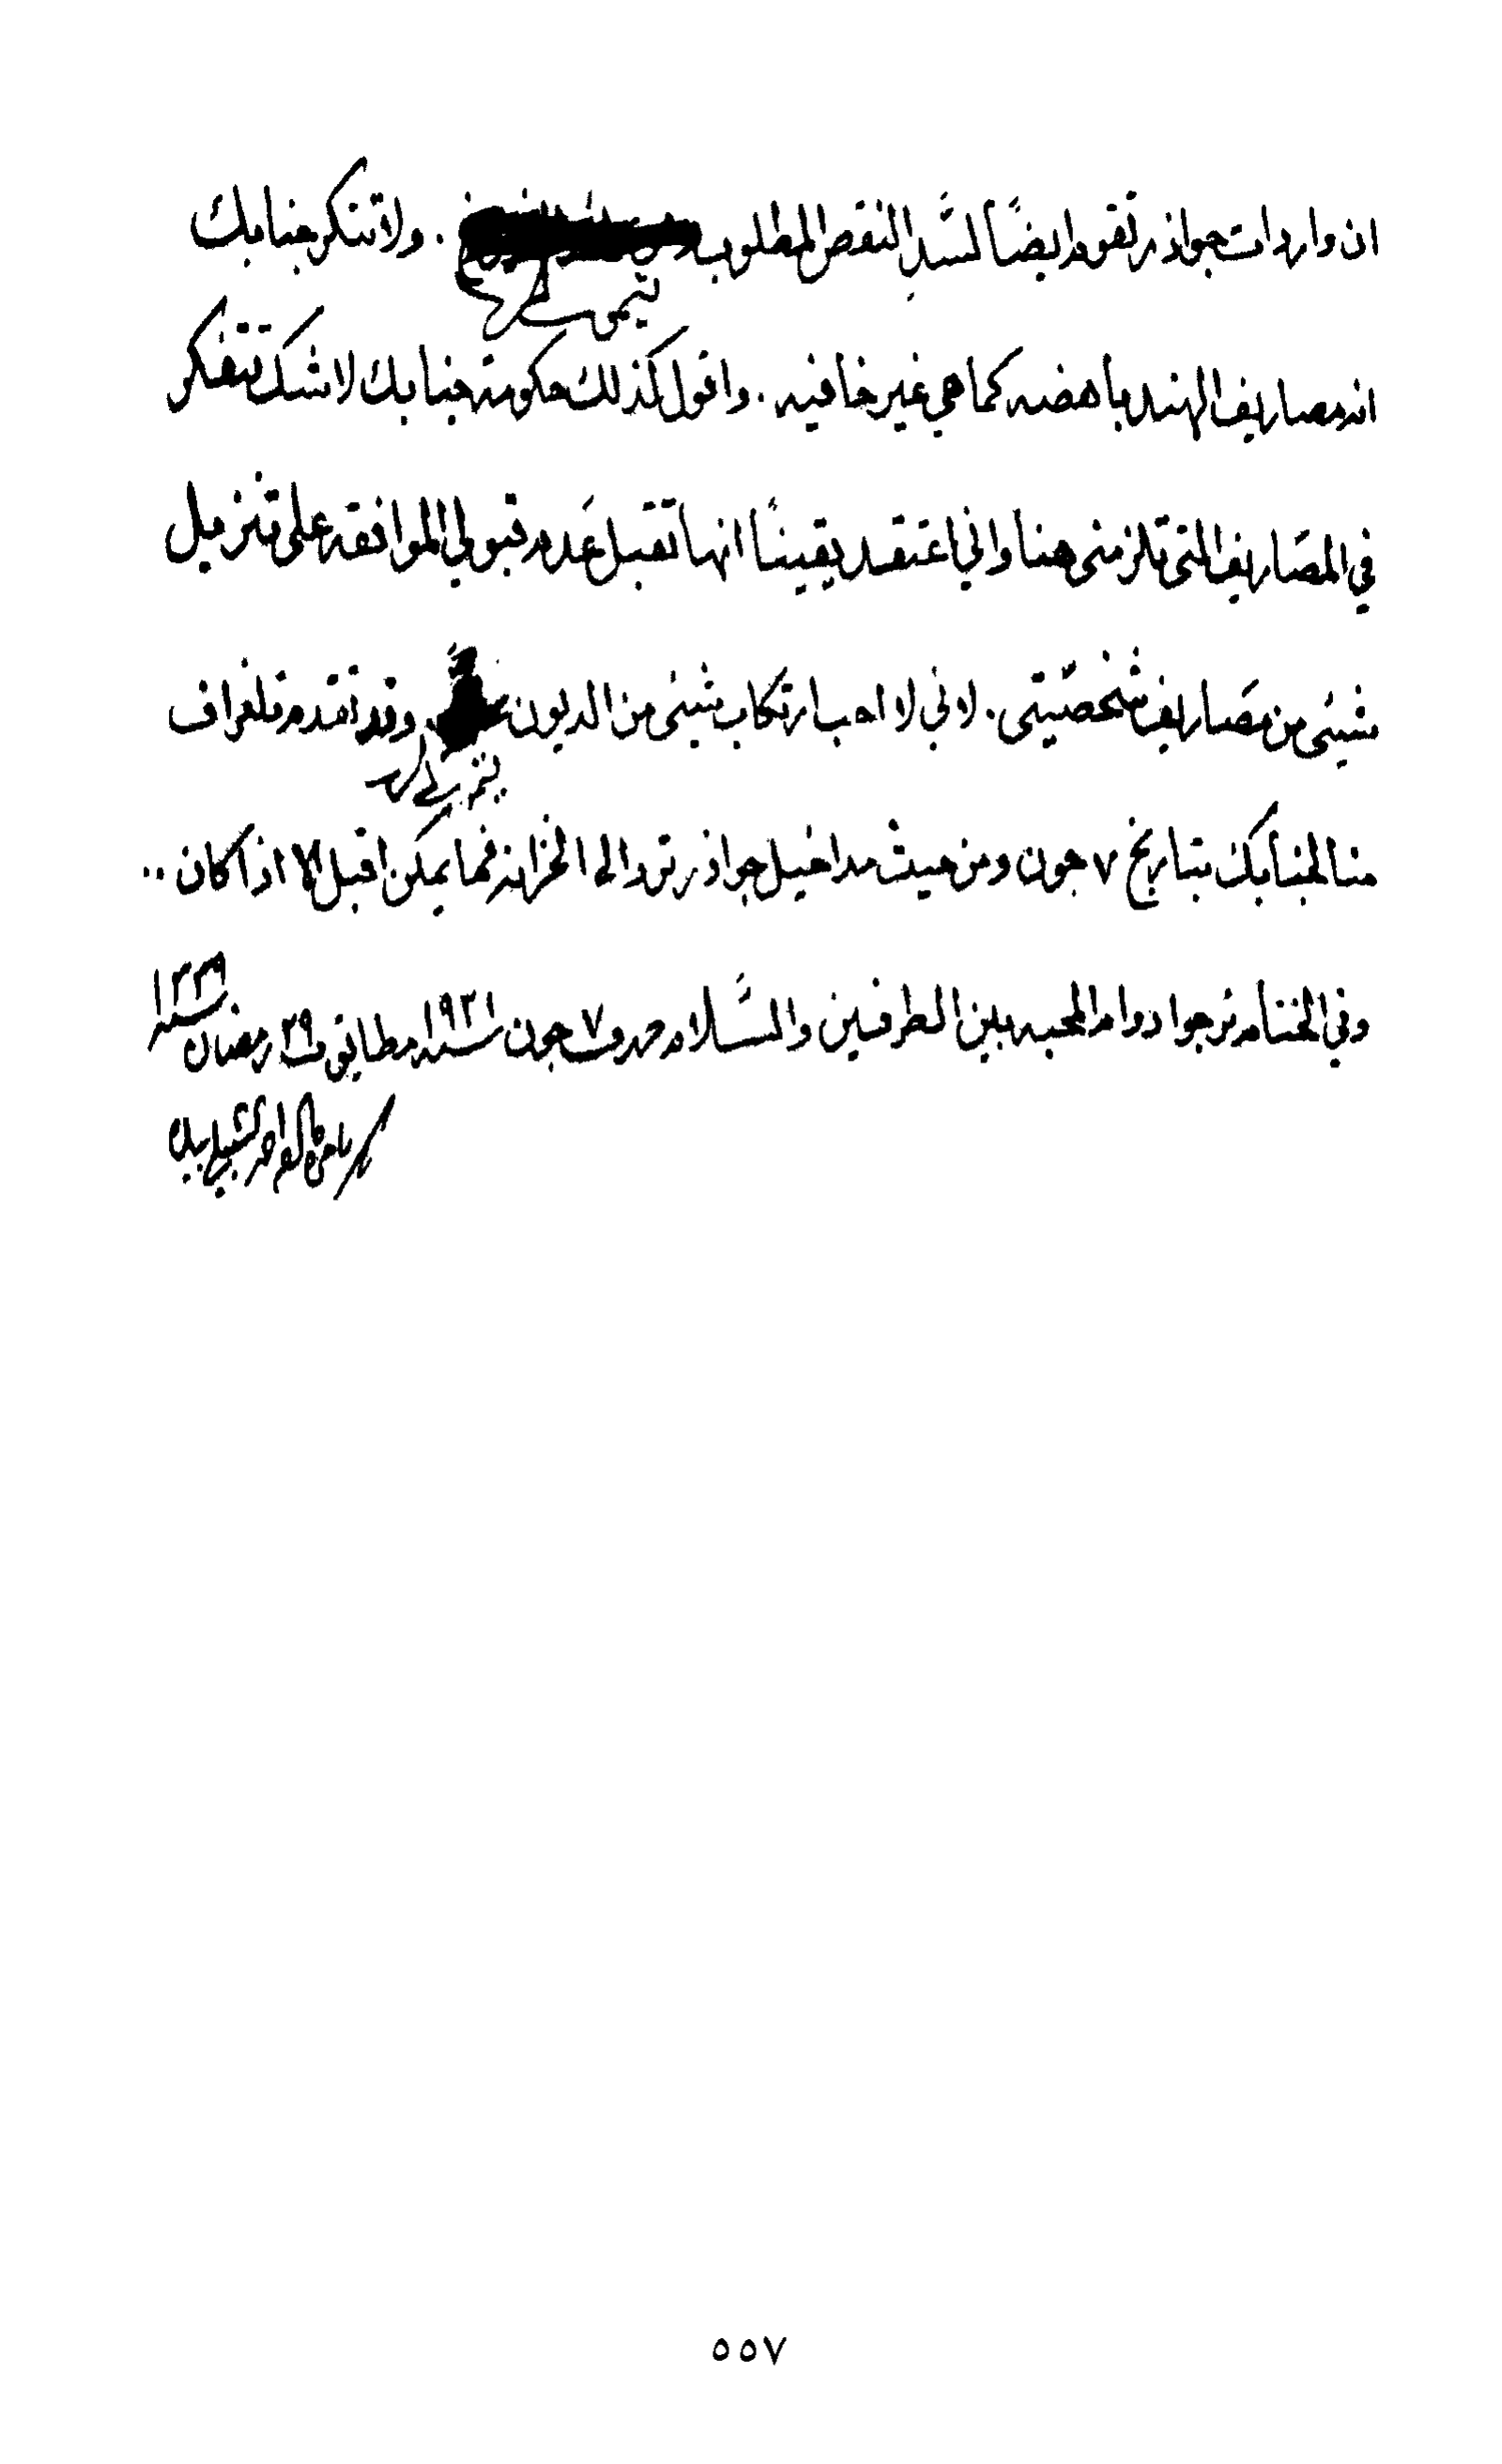 ان واردات جواذر تقوم ايضًا لسَّدِ النقص المطلوب . ولا تنكر جنابك
ان مصاريف الهند باهضه كما هي غير خافيه . واقول كذلك حكومة جنابك لا شك تتفكر
في المصَاريف التي تلزمني هنا واني اعتقد يقينًا انها تقبل عَدم قبولي الموافقه على تنزيل
شيئى من مصَاريف شخصيّتي . لاني لا احب ارتكاب شيئى من الديون وقد تقدم تلغراف
منا لجنابك بتاريخ ٧ جون ومن حيث مداخيل جواذر ترد الى الخزانه فما يمكن اقبل الا اذا كان ..
وفي الختام نرجوا دوام المحبه بين الطرفين والسَّلام حرر ٧ جون سنه ١٩٢١ مطابق ٢٩ رمضان سنه ١٣٣٩
٥٥٧